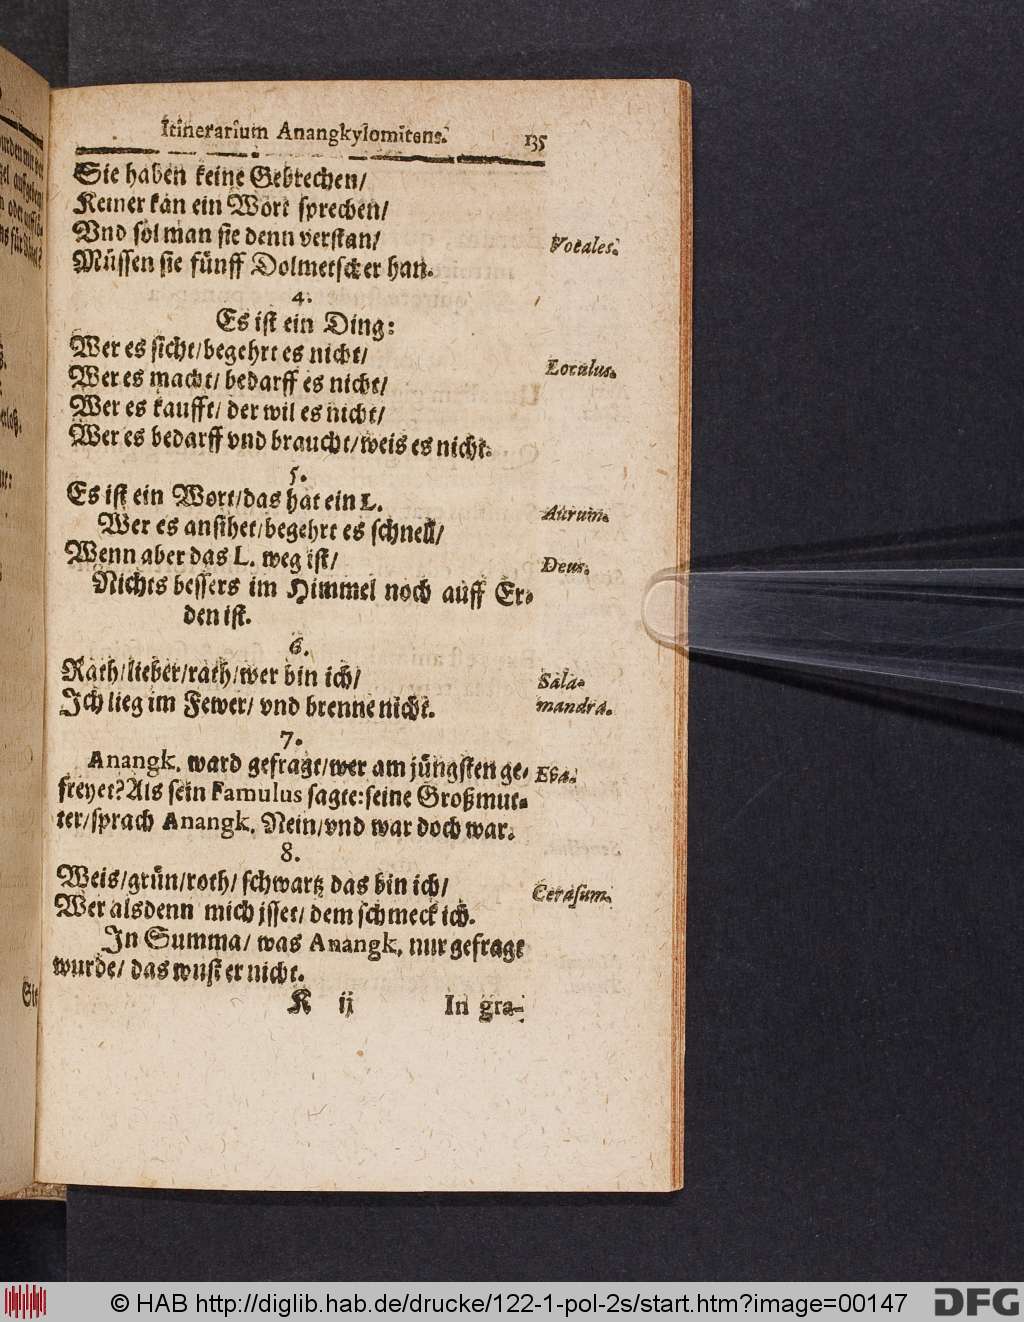 Itinerarium Anangkylomitens. 135
Sie haben keine Gebrechen/
Keiner kan ein Wort sprechen/
Vnd sol man sie denn verstan/ Vocales.
Müssen sie fünff Dolmetscher han.
4.
Es ist ein Ding:
Wer es sicht/begehrt es nicht/
Wer es macht/ bedarff es nicht/ Loculus.
Wer es kaufft/ der wil es nicht/
Wer es bedarff vnd braucht/weis es nicht.
5.
Es ist ein Wort/das hat ein L.
Wer es ansihet/begehrt es schnell/ Aurum.
Wenn aber das L. weg ist/ Deus.
Nichts bessers im Himmel noch auff Er-
den ist.
6.
Rath/lieber/rath/wer bin ich/ Sala-
Ich lieg im Fewer/ vnd brenne nicht. mandra.
7.
Anangk. ward gefragt/wer am jüngsten ge- Eva.
freyet? Als sein Famulus sagte:seine Großmut-
ter/sprach Anangk. Nein/vnd war doch war.
8.
Weis/grün/roth/ schwartz das bin ich/ Cerasum.
Wer alsdenn mich jsset/ dem schmeck ich.
In Summa/ was Anangk. nur gefragt
wurde/ das wust er nicht.
K ij In gra-
Sie
© HAB http://diglib.hab.de/drucke/122-1-pol-2s/start.htm?image=00147
DFG